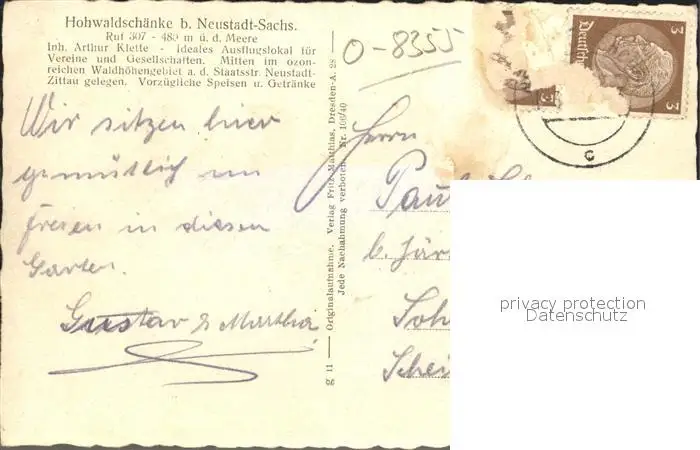 Hohwaldschänke b. Neustadt-Sachs.
Ruf 307 - 480 m ü. d. Meere
Inh. Arthur Klette - ideales Ausflugslokal für
Vereine und Gesellschaften. Mitten im ozon-
reichen Waldhöhengebiet a. d. Staatsstr. Neustadt-
Zittau gelegen. Vorzügliche Speisen u. Getränke
O-8355
Wir sitzen hier
gemütlich im
freien in diesen
Garten.
Gustav & Martha
g 11 — Originalaufnahme. Verlag Fritz Matthias, Dresden-A. 28 —
Jede Nachahmung verboten. Nr. 100/40
Herrn
Paul
b.
3
Deutsche
3
3
c
privacy protection
Datenschutz